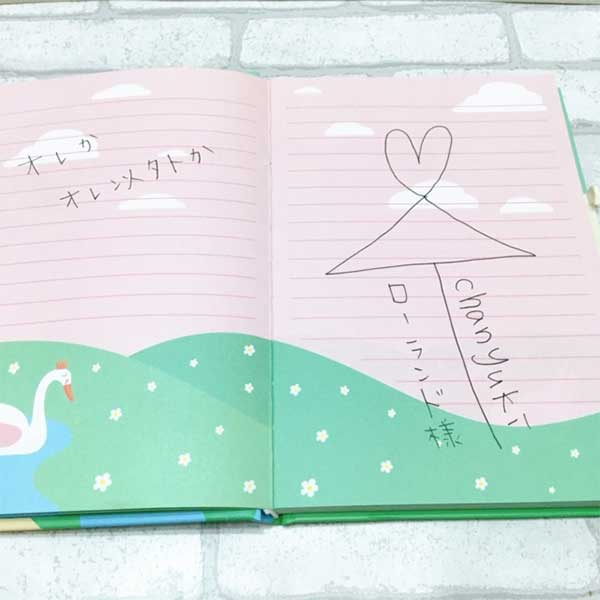 オレか
オレ以外か
ローランド様
chanyuki